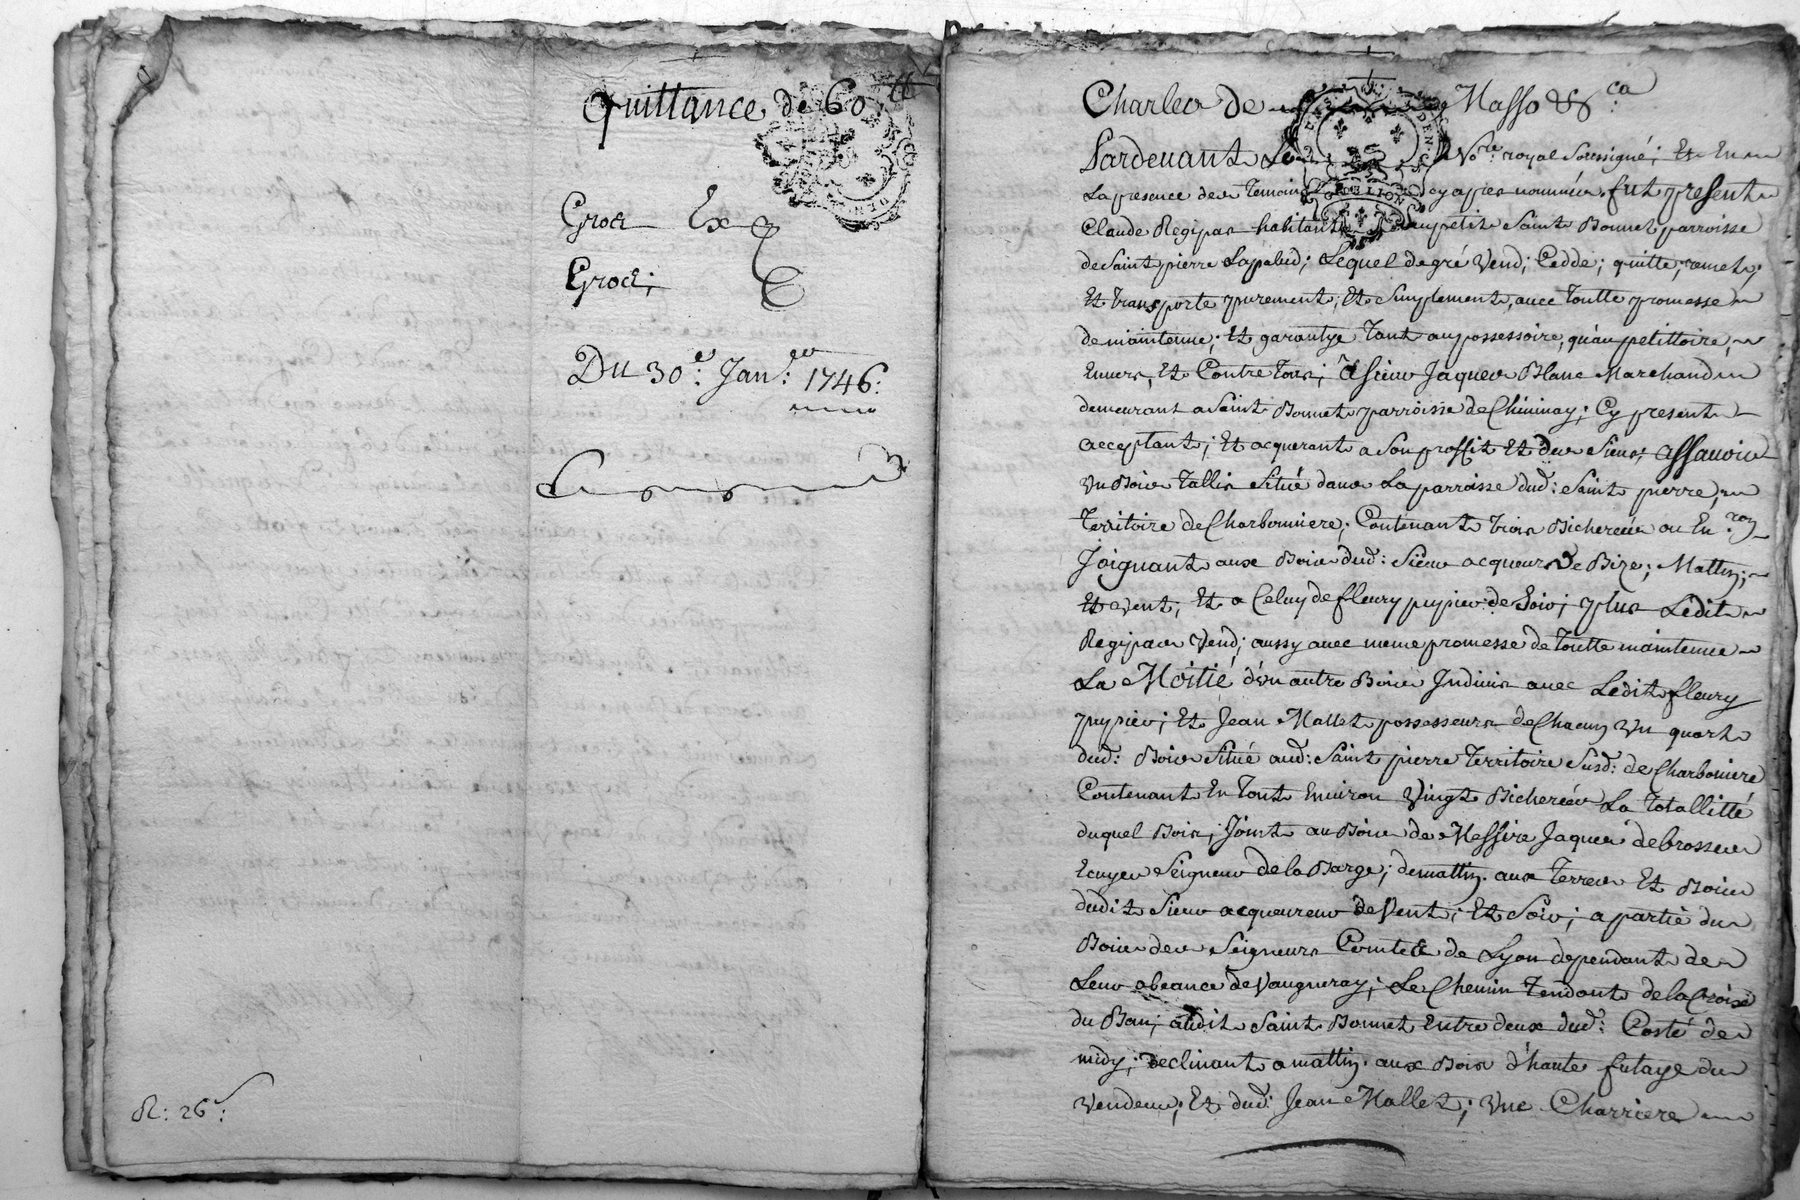 Quittance de 60tt
Gros Ex
Gros;
Du 30e: Janer: 1746:
R: 26s:
Charles de Masso &ca:
Pardevant Le Nore: royal Soussigné; Et En
La presence des Temoins cy apres nommés, fut present
Claude Regipas habitant au petit Saint Bonnet parroisse
de Saint pierre Lapalud; Lequel de gré Vend; Cedde; quitte; remet;
Et transporte purement; Et Simplement, avec Toutte promesse
de maintenue; Et garantye Tant au possessoire, qu'au petittoire,
Envers, Et Contre tous; A Sieur Jaques Blanc Marchand
demeurant a Saint Bonnet parroisse de Chivinay; Cy present
acceptant; Et acquerant a Son proffit Et des Siens; assavoir
Un Bois Tallis Situé dans La parroisse dud: Saint pierre,
Territoire de Charbonniere; Contenant trois Bicherées ou Enron
Joignant aux Bois dud: Sieur acquereur De Bize; Mattin;
Et Vent; Et a Celuy de fleury pupier de Soir; plus Ledit
Regipas Vend; aussy avec meme promesse de Toutte maintenue
La Moitié d'un autre Bois Indivis avec Ledit fleury
pupier; Et Jean Mallet possesseurs de Chacun Un quart
dud: Bois Situé aud: Saint pierre Territoire Susd: de Charboniere
Contenant En Tout Environ Vingt Bicherées La Totallitté
duquel Bois; Joint au Bois de Messire Jaques debrosses
Ecuyer Seigneur de la Barge; de mattin. aux Terres Et Bois
dudit Sieur acquereur de Vent; Et Soir; a partie du
Bois des Seigneurs Comtes de Lyon dependant de
Leur obeance de Vaugneray; Le Chemin Tendant de la Croix
du Ban; audit Saint Bonnet Entre deux dud: Costé de
midy; Declinant a mattin. aux Bois d'haute futaye du
Vendeur; Et dud: Jean Mallet; Une Charriere